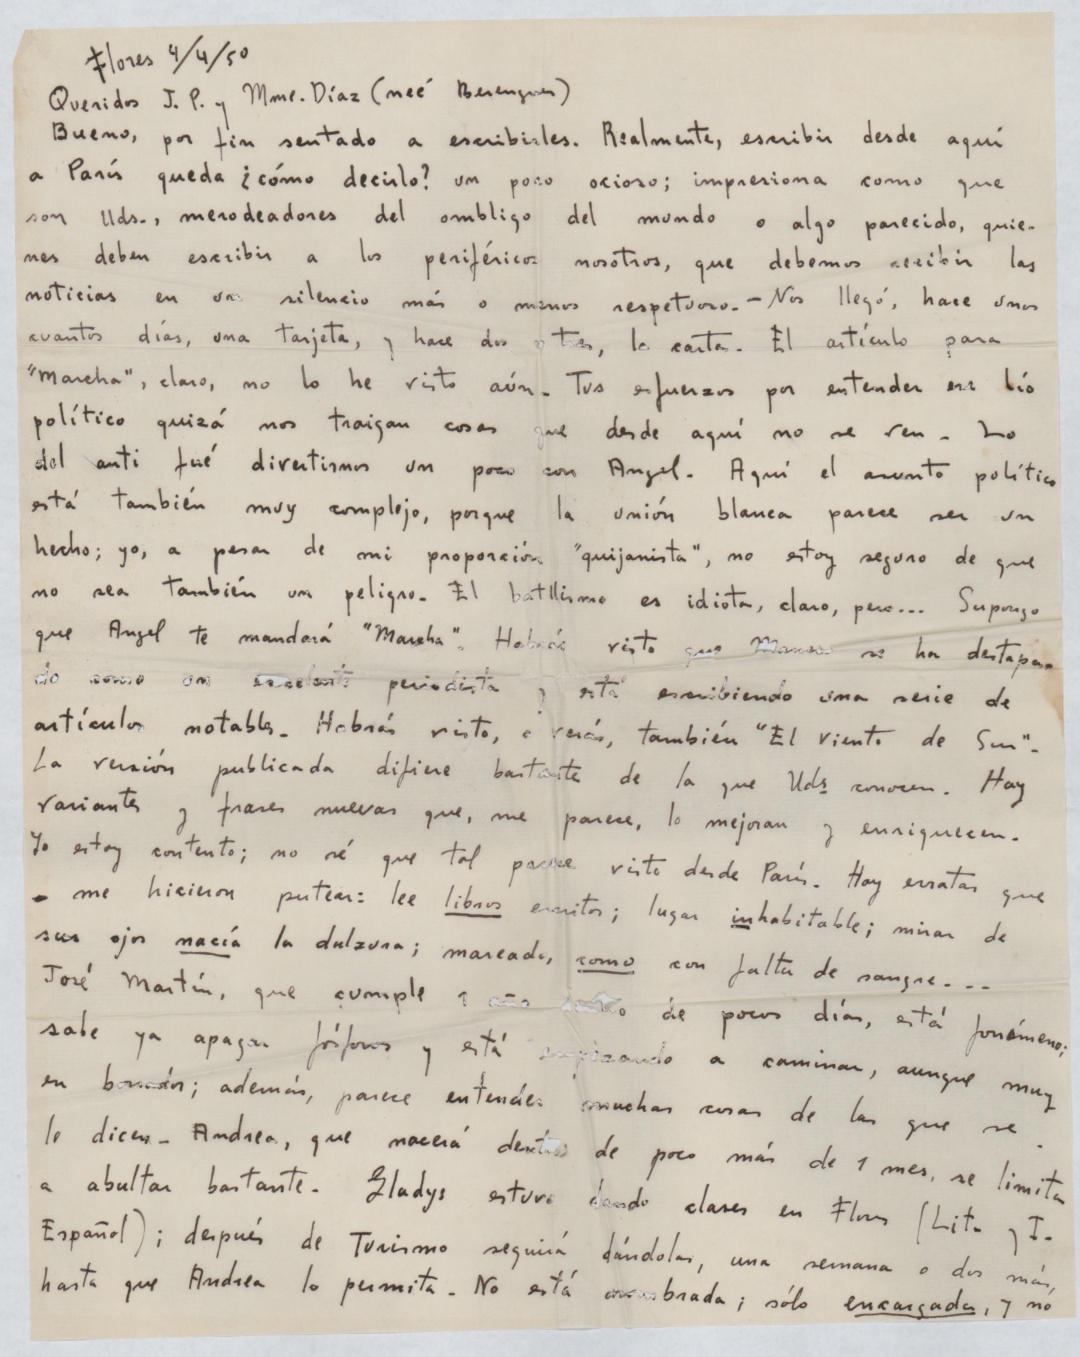 Flores 4/4/50
Queridos J. P. y Mme. Díaz (neé Berenguer)
Bueno, por fin sentado a escribirles. Realmente, escribir desde aquí
a París queda ¿cómo decirlo? un poco ocioso; impresiona como que
son Uds., merodeadores del ombligo del mundo o algo parecido, quie-
nes deben escribir a los periféricos nosotros, que debemos recibir las
noticias en un silencio más o menos respetuoso.- Nos llegó, hace unos
cuantos días, una tarjeta, y hace dos o tres, la carta. El artículo para
"Marcha", claro, no lo he visto aún. Tus esfuerzos por entender ese lío
político quizá nos traigan cosas que desde aquí no se ven. Lo
del anti fué divertirnos un poco con Angel. Aquí el asunto político
está también muy complejo, porque la unión blanca parece ser un
hecho; yo, a pesar de mi proporción "quijanista", no estoy seguro de que
no sea también un peligro. El batllismo es idiota, claro, pero... Supongo
que Angel te mandará "Marcha". Habrás visto que se ha destapa-
do como un excelente periodista y está escribiendo una serie de
artículos notables. Habrás visto, o verás, también "El viento de Sur".
La versión publicada difiere bastante de la que Uds. conocen. Hay
variantes y frases nuevas que, me parece, lo mejoran y enriquecen.
Yo estoy contento; no sé que tal parece visto desde París. Hay erratas que
me hicieron putear: lee libros escritos; lugar inhabitable; mirar de
sus ojos nacía la dulzura; mareado, como con falta de sangre....
José Martín, que cumple 1 año dentro de pocos días, está fonómeno;
sabe ya apagar fósforos y está empezando a caminar, aunque muy
en borrador; además, parece entender muchas cosas de las que se
le dicen. Andrea, que nacerá dentro de poco más de 1 mes, se limita
a abultar bastante. Gladys estuvo dando clases en Flores (Lit. y I.
Español); después de Turismo seguirá dándolas, una semana o dos más,
hasta que Andrea lo permita. No está nombrada; sólo encargada, y no